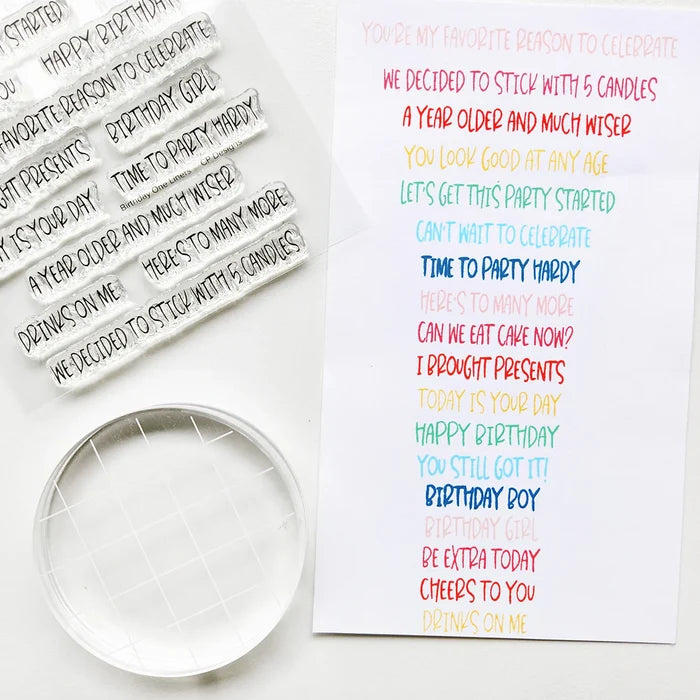 STARTED
HAPPY BIRTHDAY
FAVORITE REASON TO CELEBRATE
BIRTHDAY GIRL
PRESENTS
TIME TO PARTY HARDY
Birthday One Liners CP Designs
IS YOUR DAY
A YEAR OLDER AND MUCH WISER
HERE'S TO MANY MORE
DRINKS ON ME
WE DECIDED TO STICK WITH 5 CANDLES
YOU'RE MY FAVORITE REASON TO CELEBRATE
WE DECIDED TO STICK WITH 5 CANDLES
A YEAR OLDER AND MUCH WISER
YOU LOOK GOOD AT ANY AGE
LET'S GET THIS PARTY STARTED
CAN'T WAIT TO CELEBRATE
TIME TO PARTY HARDY
HERE'S TO MANY MORE
CAN WE EAT CAKE NOW?
I BROUGHT PRESENTS
TODAY IS YOUR DAY
HAPPY BIRTHDAY
YOU STILL GOT IT!
BIRTHDAY BOY
BIRTHDAY GIRL
BE EXTRA TODAY
CHEERS TO YOU
DRINKS ON ME